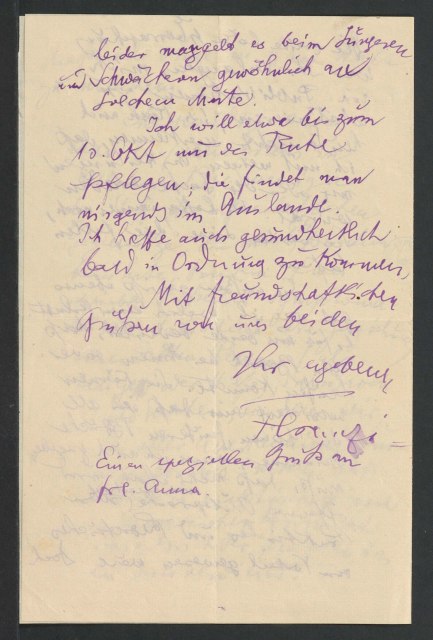 leider mangelt es beim Jüngeren
und Schwächern gewöhnlich an
solchem Mute.
Ich will etwa bis zum
10. Okt nur der Ruhe
pflegen, die findet man
nirgends im Auslande.
Ich hoffe auch gesundheitlich
bald in Ordnung zu kommen,
Mit freundschaftlichen
Grüßen von uns beiden
Ihr ergebener
Ferenczi
Einen speziellen Gruß an
Frl. Anna.